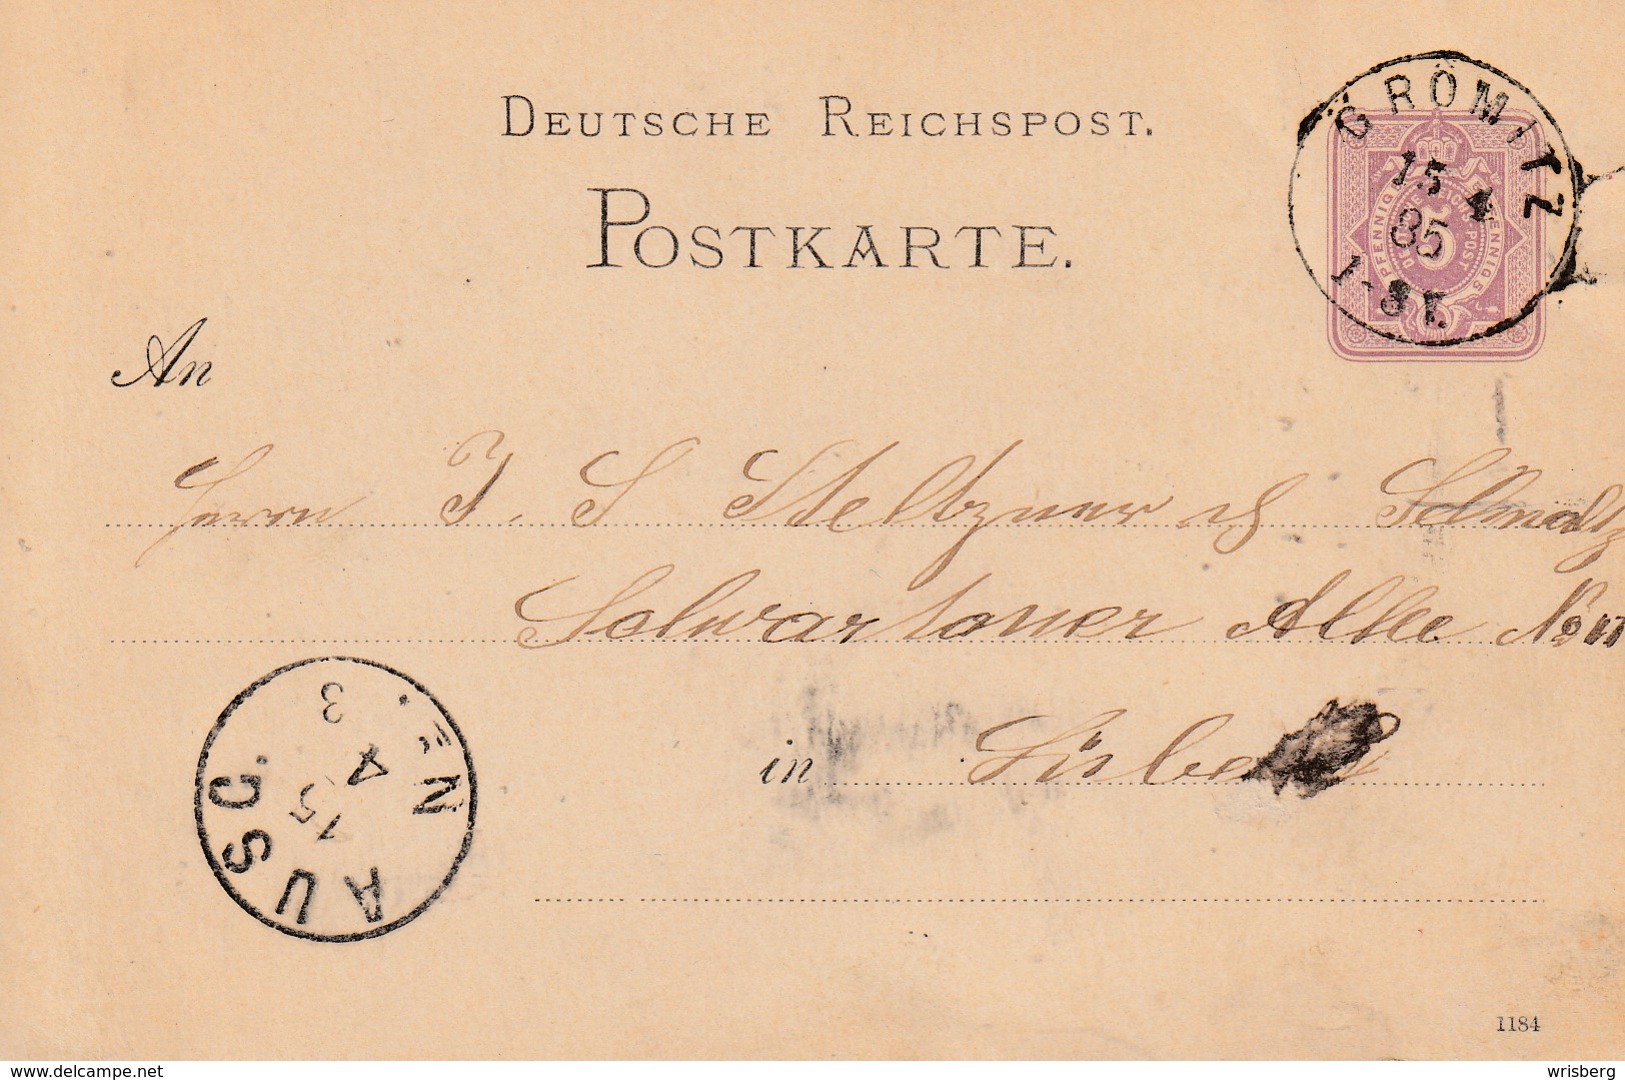 DEUTSCHE REICHSPOST.
POSTKARTE.
GRÖMITZ
15 4
85
1-8 V.
DEUTSCHE REICHS-POST
5
An
Herrn J. S Steltzner
Schwartauer Allee
in Lübeck
AUSG.
15
4
3
N
1184
delcampe.net
wrisberg